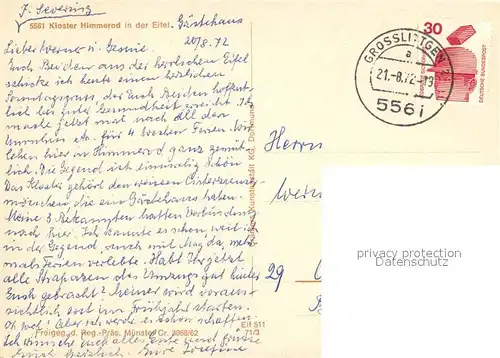 F. Severing
5561 Kloster Himmerod in der Eifel. Gästehaus
20/8.72
Liebe Werner u. Gesine.
Euch Beiden aus der herrlichen Eifel
schicke ich heute einen herzlichen
Sonntagsgruss der Euch Beiden hoffent-
lich bei guter Gesundheit erreicht. Ich
mache jetzt mal nach all den
etc. für 4 Wochen Ferien. Wir
leben hier in Himmerod ganz gemüt-
lich. Die Gegend ist einmalig schön
Das Kloster gehört den weissen Cisterzienser-
mönchen, die ein Gästehaus haben.
Meine 3 Bekannten hatten Verbindung
nach hier. Ich kannte es schon, weil ich
in der Gegend, auch mit Magda, mehr-
mals Ferien verlebte. Habt Ihr jetzt
alle Strapazen des Umzugs gut hinter
Euch gebracht? Meiner wird voraus-
sichtlich erst im Frühjahr starten.
Oh weh! Aber ich werde es schon schaffen.
Ich wünsche Euch alles Gute und grüsse
Euch herzlich. Eure Josefine
Freigeg. d. Reg.-Präs. Münster Nr. 3068/62
Eif 511
71/3
GROSSLITTGEN
a
21.-8.72-19
5561
30
DEUTSCHE BUNDESPOST
Herrn
Wern
29
privacy protection
Datenschutz